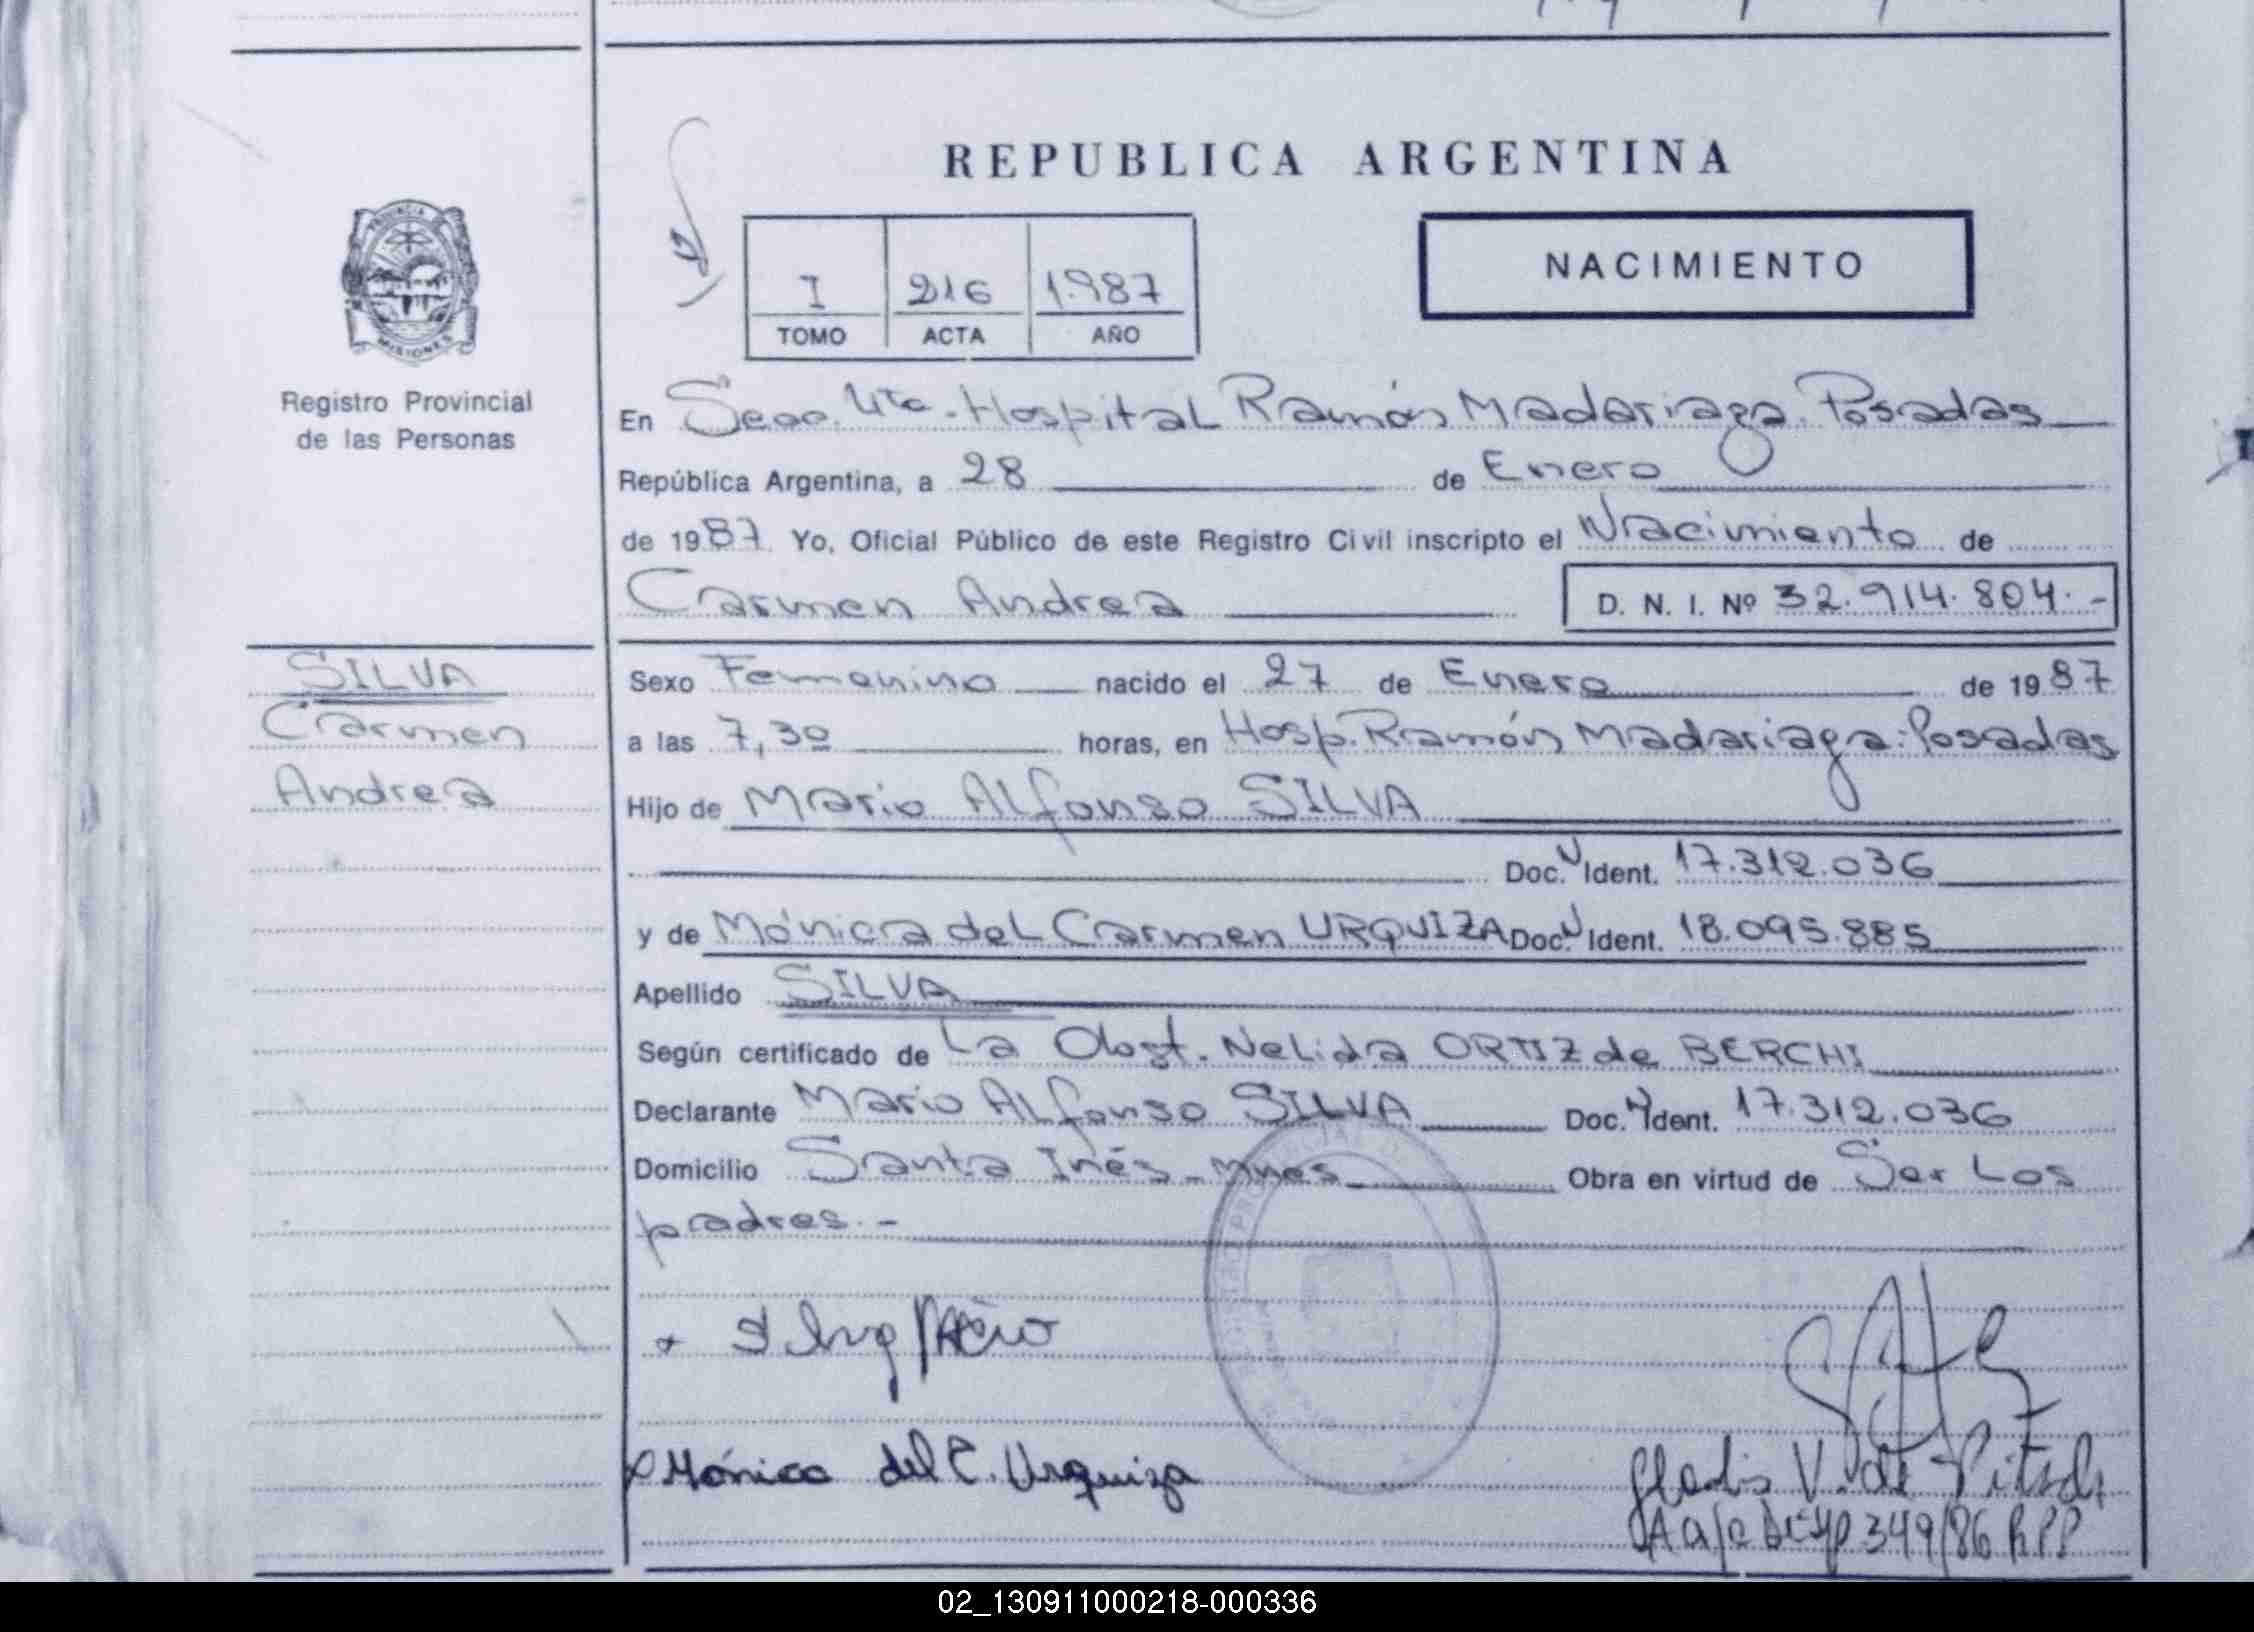 REPUBLICA ARGENTINA
NACIMIENTO
I 216 1.987
TOMO ACTA AÑO
PROVINCIA
MISIONES
Registro Provincial
de las Personas
En Secc. 4ta. Hospital Ramón Madariaga. Posadas
República Argentina, a 28 de Enero
de 1987. Yo, Oficial Público de este Registro Civil inscripto el Nacimiento de
Carmen Andrea D. N. I. Nº 32.914.804.-
SILVA
Carmen
Andrea
Sexo Femenino nacido el 27 de Enero de 1987
a las 7,30 horas, en Hosp. Ramón Madariaga. Posadas
Hijo de Mario Alfonso SILVA
Doc. Ident. 17.312.036
y de Mónica del Carmen URQUIZA Doc. Ident. 18.095.885
Apellido SILVA
Según certificado de La Obst. Nelida ORTIZ de BERCHI
Declarante Mario Alfonso SILVA Doc. Ident. 17.312.036
Domicilio Santa Inés - Mnes - Obra en virtud de Ser Los
padres. -
Mónica del C. Urquiza
Gladis V. de
349/86 RPP
02_130911000218-000336